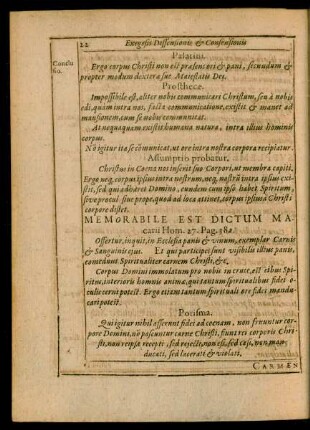 22 Exegesis Dissensionis & Consensionis
Palatini.
Conclusio.
Ergo corpus Christi non est præsens rei & pani, secundum &
propter modum dexteræ suæ Maiestatis Dei.
Prosthecæ.
Impossibile est, aliter nobis communicari Christum, seu a nobis
edi, quam intra nos, facta communicatione, existit & manet ad
mansionem, cum se nobis communicat.
At nequaquam existit humana natura, intra illius hominis
corpus.
Non igitur ita se communicat, ut ore intra nostra corpora recipiatur.
Assumptio probatur.
Christus in Cœna nos inserit suo Corpori, ut membra capiti,
Ergo neq, corpus ipsius intra nostrum, neq, nostrū intra ipsius exi-
stit, sed qui adhæret Domino, eundem cum ipso habet Spiritum,
sive procul sive prope, quod ad loca attinet, corpus ipsius à Christi
corpore distet.
MEMORABILE EST DICTUM MA-
carii Hom. 27. Pag. 382
Offertur, inquit, in Ecclesia panis & vinum, exemplar Carnis
& Sanguinis ejus. Et qui participes sunt visibilis illius panis,
comedunt Spiritualiter carnem Christi, &c.
Corpus Domini immolatum pro nobis in cruce, est cibus Spiri-
tus, interioris hominis animæ, qui tantum spiritualibus fidei o-
culis cerni potest. Ergo etiam tantum spirituali ore fidei mandu-
cari potest.
Porisma.
Qui igitur nihil afferunt fidei ad cœnam, non fruuntur cor-
pore Domini, nec pascuntur carne Christi, fiunt rei corporis Chri-
sti, non reipsa recepti, sed rejecti, non esi, sed cæsi, non man-
ducati, sed lacerati & violati.
CARMEN